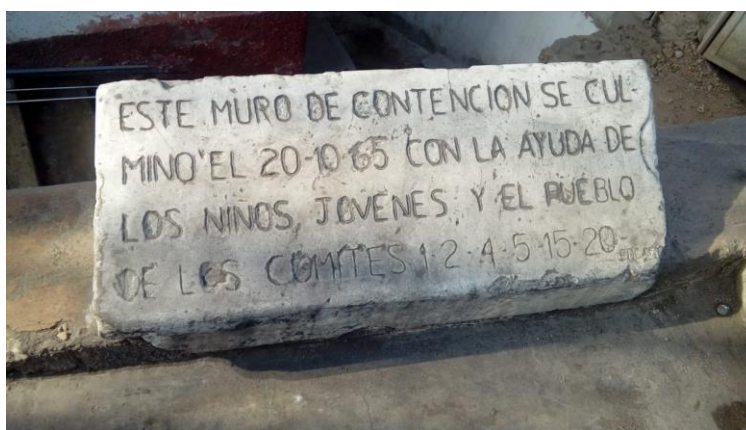 ESTE MURO DE CONTENCION SE CUL-
MINO' EL 20-10-65 CON LA AYUDA DE
LOS NIÑOS, JOVENES Y EL PUEBLO
DE LOS COMITES 1-2-4-5-15-20-